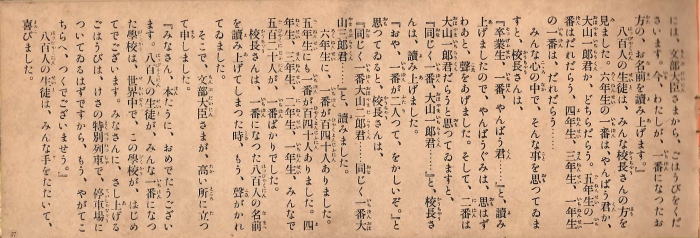 には、文部大臣さまから、ごはうびをくだ
さいます。今、わたしが、一番になつたお
方の、お名前を讀み上げます。』
八百人の生徒は、みんな校長さんの方を
見ました。六年生の一番は、やんばう君か、
大山一郎君か、どちらだらう。五年生の一
番はだれだらう、四年生、三年生、一年生
の一番は、だれだらう……
みんな心の中で、そんな事を思つてゐま
すと、校長さんは、
『卒業生、一番、やんばう君……』と、讀み
上げましたので、やんばうぐみは、思はず
わあと、聲をあげました。そして、二番は
大山一郎君だらうと思つてゐますと、
『同じく一番、大山一郎君……』と、校長さ
んは、讀み上げました。
『おや、一番が二人つて、をかしいぞ。』と
思つてゐると、校長さんは、
『同じく一番大山二郎君……同じく一番大
山三郎君……』と、讀みました。
六年生に、一番が百四十人ありました。
五年生にも一番が百四十人ありました。四
年生、三年生、二年生、一年生、みんなで
五百二十人が、一番ばかりでした。
校長さんは、一番になつた八百人の名前
を讀み上げてしまつた時、もう、聲がかれ
てゐました。
そこで、文部大臣さまが、高い所に立つ
て申しました。
『みなさん、本たうに、おめでたうござい
ます。八百人の生徒が、みんな一番になつ
た學校は、世界中で、この學校が、はじめ
てでございます。みなさんに、さし上げる
ごはうびは、けさの特別列車で、停車場に
ついてゐるはずですから、もう、やがてこ
ちらへ、つくでございませう。』
八百人の生徒は、みんな手をたたいて、
喜びました。
37